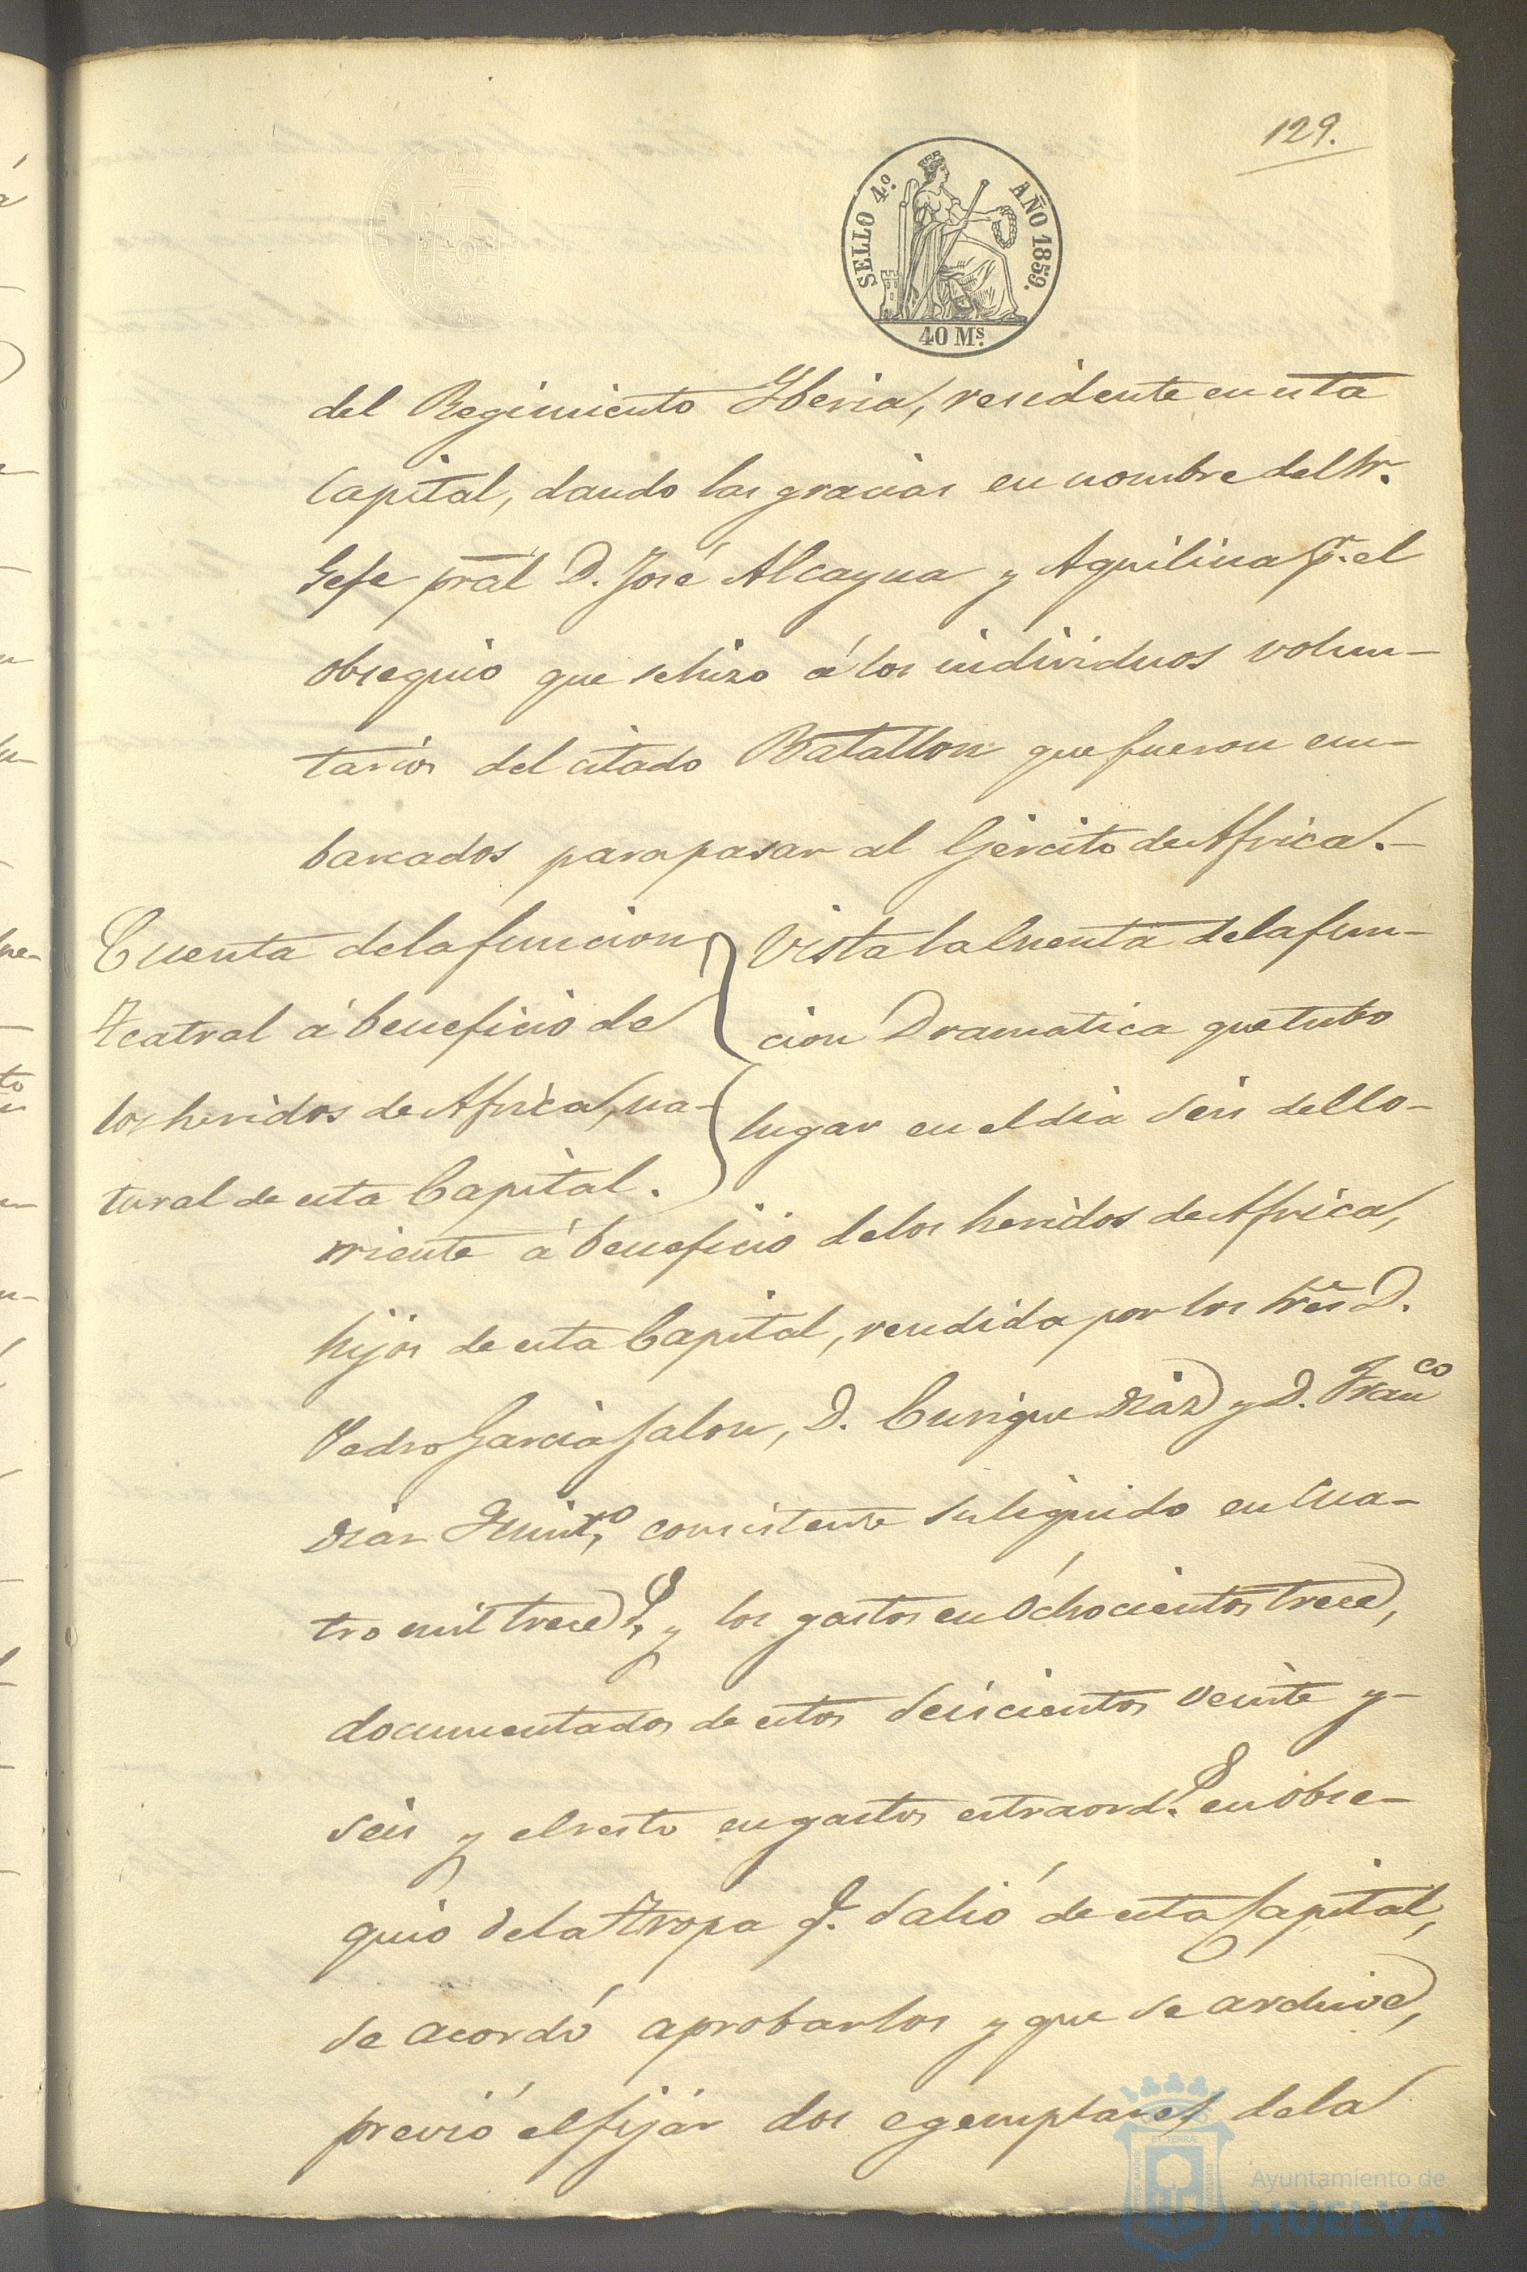 129.
SELLO 4.º AÑO 1859.
40 Ms.
del Regimiento Yberia, residente en esta
Capital, dando las gracias en nombre del Sr.
Gefe pral D. José Alcayna y Aquilina pr. el
obsequio que se hizo á los individuos volun-
tarios del citado Batallon que fueron em-
barcados para pasar al Ejército de Africa.-
Cuenta de la funcion
Teatral á beneficio de
los heridos de Africa, na-
tural de esta Capital.
Vista la Cuenta de la fun-
cion Dramatica que tubo
lugar en el dia seis del Co-
rriente á beneficio de los heridos de Africa,
hijos de esta Capital, rendida por los Sres D.
Pedro Garcia Jalon, D. Enrique Diaz y D. Franco
Diaz consistente su liquido en Cua-
tro mil trece y los gastos en Ochocientos trece,
documentados de estos seiscientos veinte y-
seis y el resto en gastos estraord.s en obse-
quio de la tropa q. salió de esta Capital,
se acordó aprobarlos y que se archive,
previó el fijár dos egemplares de la
Ayuntamiento de
HUELVA